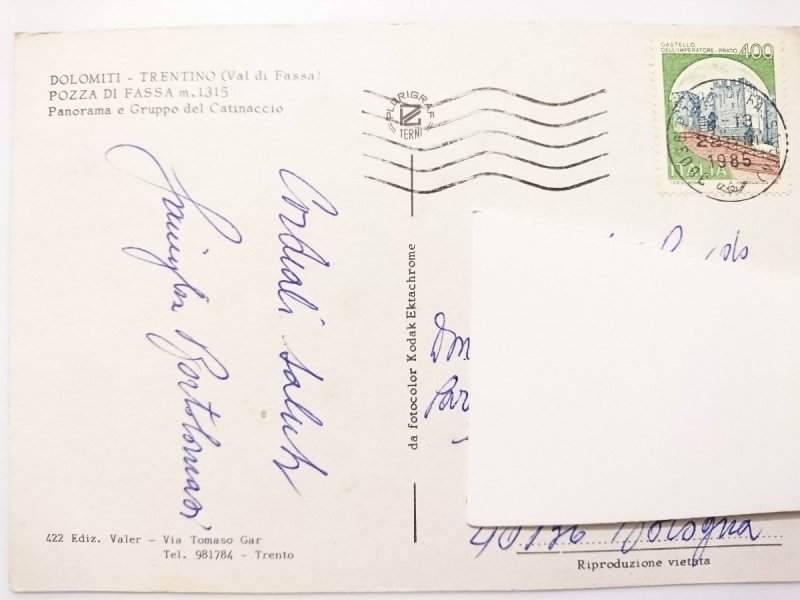 DOLOMITI - TRENTINO (Val di Fassa)
POZZA DI FASSA m.1315
Panorama e Gruppo del Catinaccio
Cordiali saluti
Famiglia Bortolomasi
422 Ediz. Valer - Via Tomaso Gar
Tel. 981784 - Trento
PLURIGRAF
TERNI
da fotocolor Kodak Ektachrome
CASTELLO
DELL'IMPERATORE - PRATO
400
1985
ITALIA
40136 Bologna
Riproduzione vietata